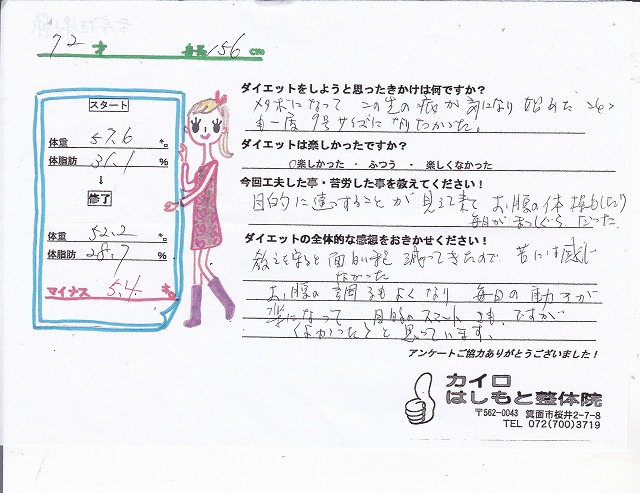 72才 身長156cm
スタート
体重 57.6 キロ
体脂肪 31.1 %
↓
修了
体重 52.2 キロ
体脂肪 28.7 %
マイナス 5.4 キロ
ダイエットをしようと思ったきかけは何ですか？
メタボになって この生の病が気になり始めた
も一度9号サイズになりたかった。
ダイエットは楽しかったですか？
○楽しかった ・ ふつう ・ 楽しくなかった
今回工夫した事・苦労した事を教えてください！
目的に達することが見えて来て お腹の体操もしたり
毎日がまっしぐらだった
ダイエットの全体的な感想をおきかせください！
教えを守ると面白い程減ってきたので 苦には感じ
なかった
お腹の調子もよくなり 毎日の動きが
楽になって ですが
よかったと思っています。
アンケートご協力ありがとうございました！
カイロ
はしもと整体院
〒562-0043 箕面市桜井2-7-8
TEL 072(700)3719